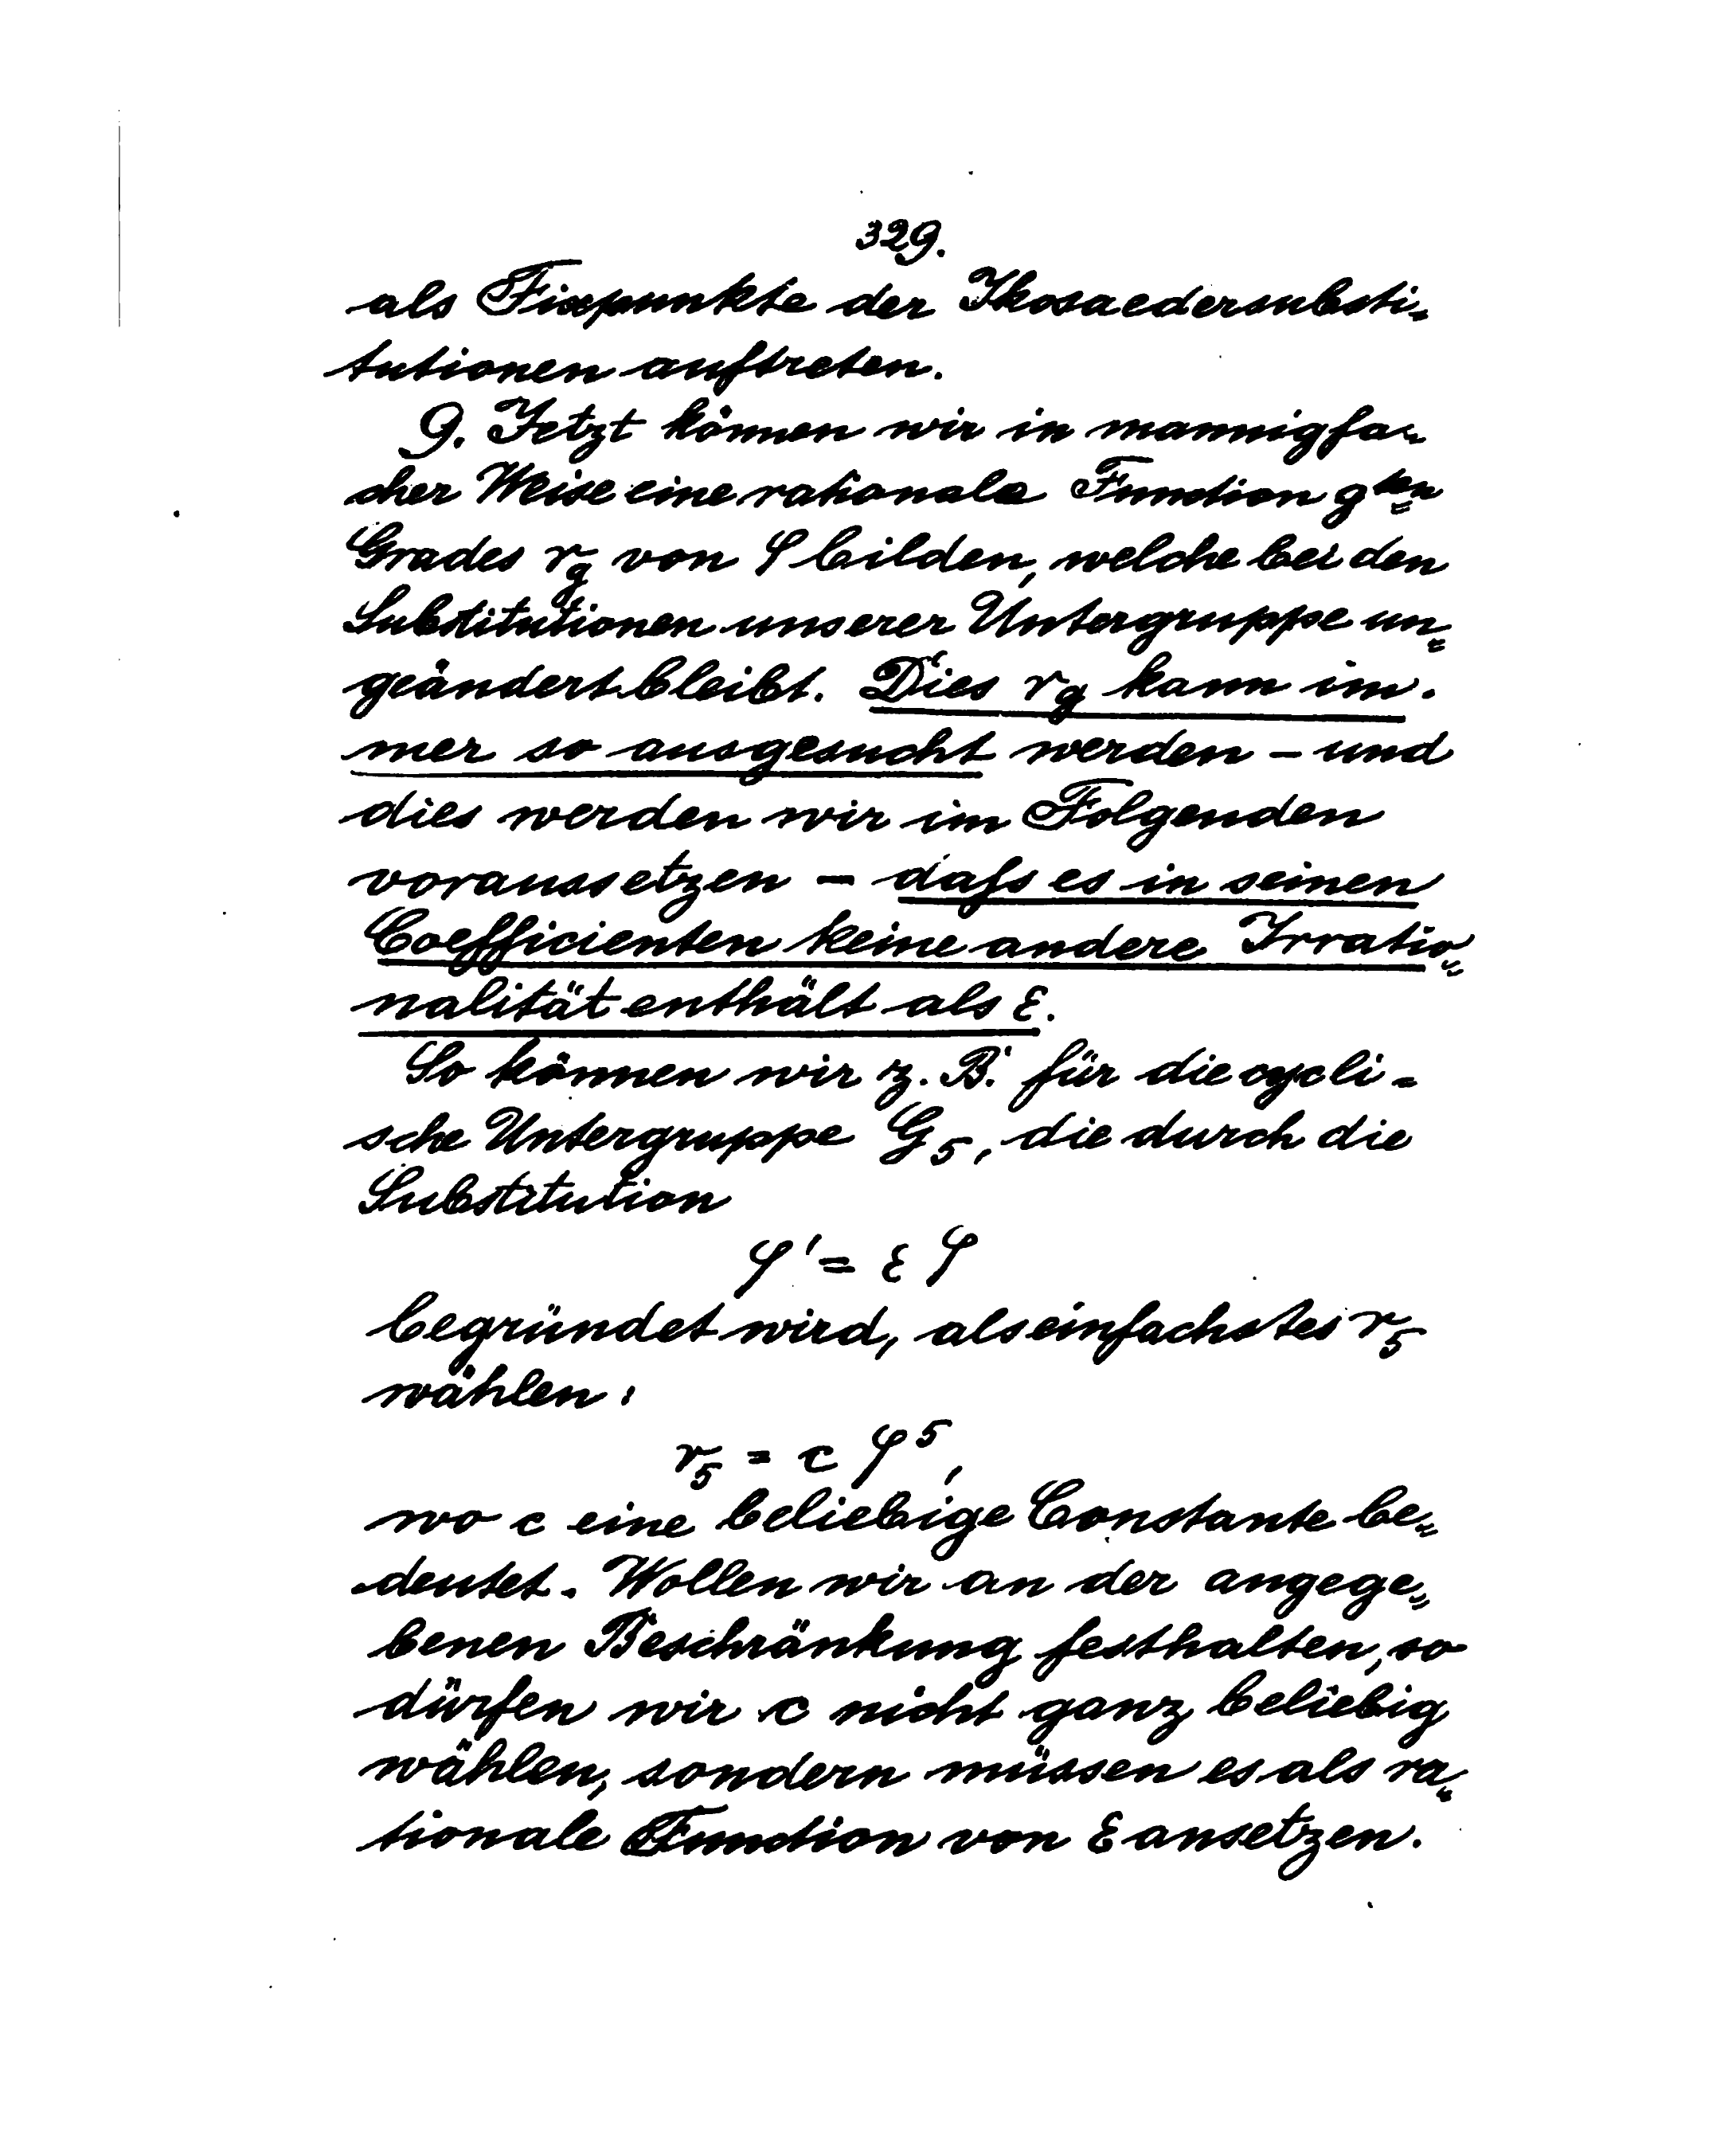 329.
als Fixpunkte der Ikosaedersubsti-
tutionen auftreten.
9. Jetzt können wir in mannigfa-
cher Weise eine rationale Function gten
Grades r_g von φ bilden, welche bei den
Substitutionen unserer Untergruppe un-
geändert bleibt. Dies r_g kann im-
mer so ausgesucht werden – und
dies werden wir im Folgenden
voraussetzen – dafs es in seinen
Coefficienten keine andere Irratio-
nalität enthält als ε.
So können wir z. B. für die cycli-
sche Untergruppe G_5, die durch die
Substitution
φ' = ε φ
begründet wird, als einfachstes r_5
wählen:
r_5 = c φ^5,
wo c eine beliebige Constante be-
deutet. Wollen wir an der angege-
benen Beschränkung festhalten, so
dürfen wir c nicht ganz beliebig
wählen, sondern müssen es als ra-
tionale Function von ε ansetzen.